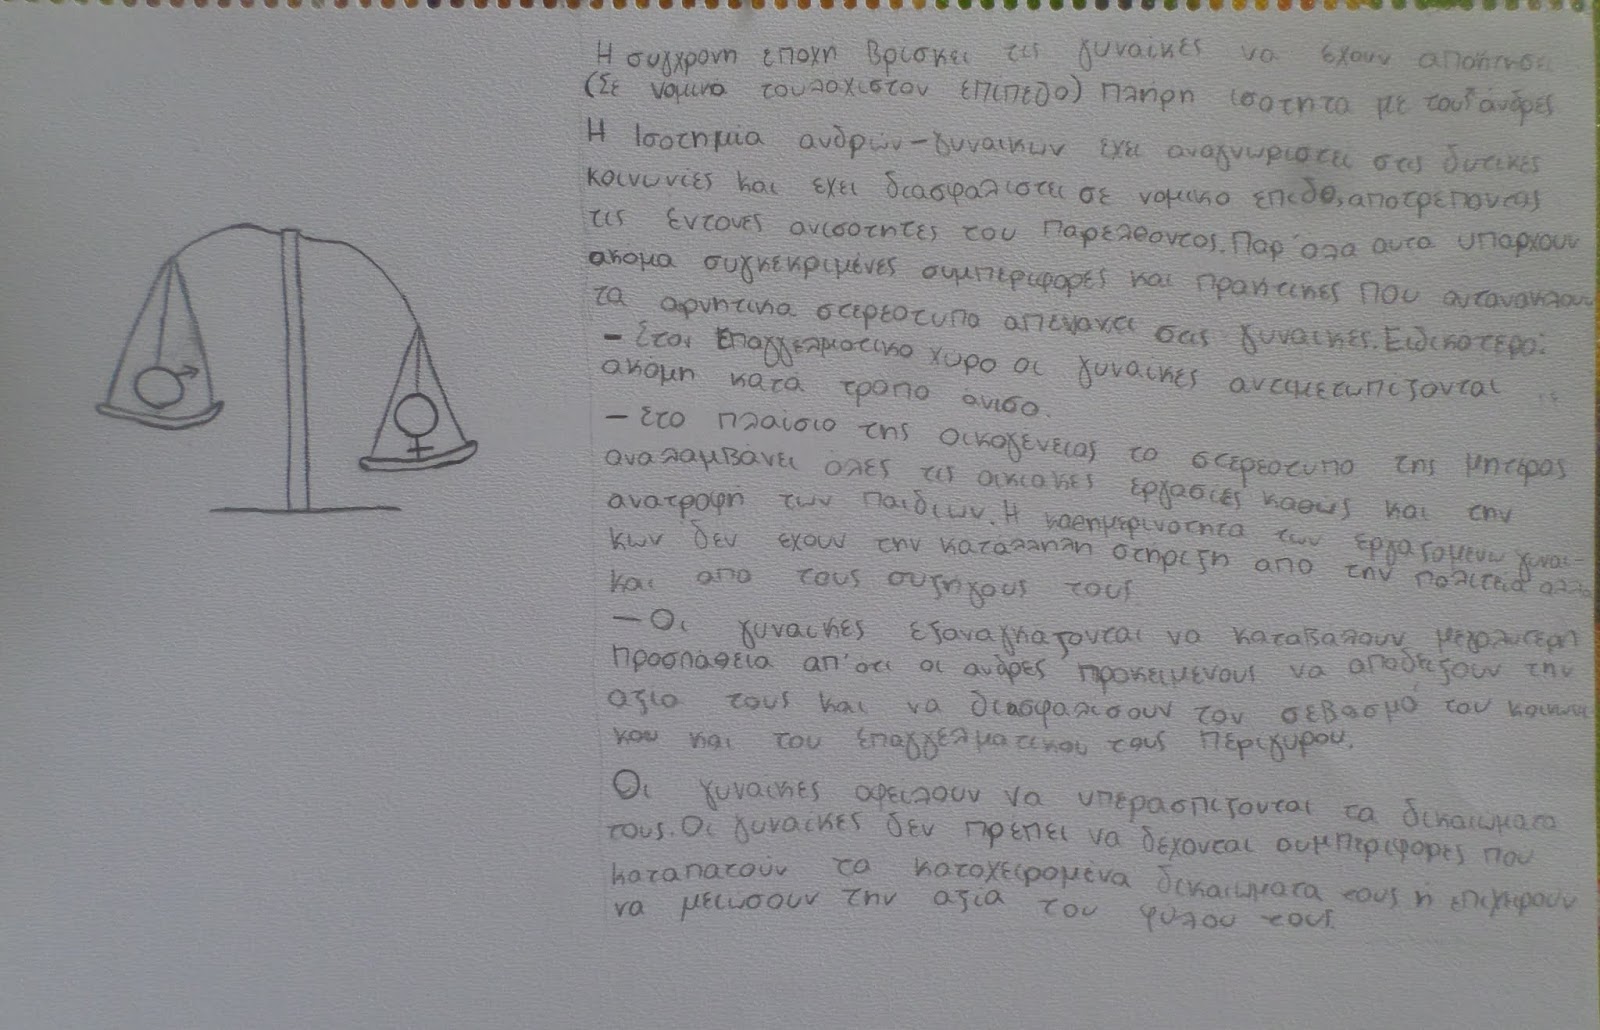 Η συγχρονη εποχη βρισκει τις γυναικες να εχουν αποκτησει
(Σε νομικο τουλοχιστον επιπεδο) πληρη ισοτητα με τους άνδρες
Η Ισοτημία ανδρών-γυναικων εχει αναγνωριστει στις δυτικες
κοινωνίες και εχει διασφαλιστει σε νομικο επιεδο, αποτρεποντας
τις εντονες ανισοτητες του Παρελθοντος. Παρ'ολα αυτα υπαρχουν
ακομα συγκεκριμένες συμπεριφορες και πρακτικες που αντανακλουν
τα αρνητικα στερεοτυπα απεναντι στις γυναικες. Ειδικοτερα:
- Στον Επαγγελματικο χυρο οι γυναίκες αντιμετωπιζονται
ακομη κατα τροπο άνισο.
- Στο πλαίσιο της οικογενειας το στερεοτυπο της μητερας
αναλαμβάνει όλες τις οικιακες εργασιες καθως και την
ανατροφη των παιδιων. Η καθημερινοτητα των εργαζομενων γυναι-
κων δεν εχουν την καταλληλη στηριξη απο την πολιτεια αλλα
και απο τους συζηγους τους.
- Οι γυναικες εξαναγκαζονται να καταβαλουν μεγαλυτερη
Προσπάθεια απ'οτι οι ανδρες προκειμενους να αποδειξουν την
αξια τους και να διασφαλισουν τον σεβασμό του κοινωνι
κου και του επαγγελματικου τους περιγυρου.
Οι γυναικες οφειλουν να υπερασπιζονται τα δικαιωματα
τους. Οι γυναίκες δεν πρέπει να δεχονται συμπεριφορες που
καταπατούν τα κατοχειρομένα δικαιωματα τους ή επιχιρουν
να μειωσουν την αξια του φυλου τους.